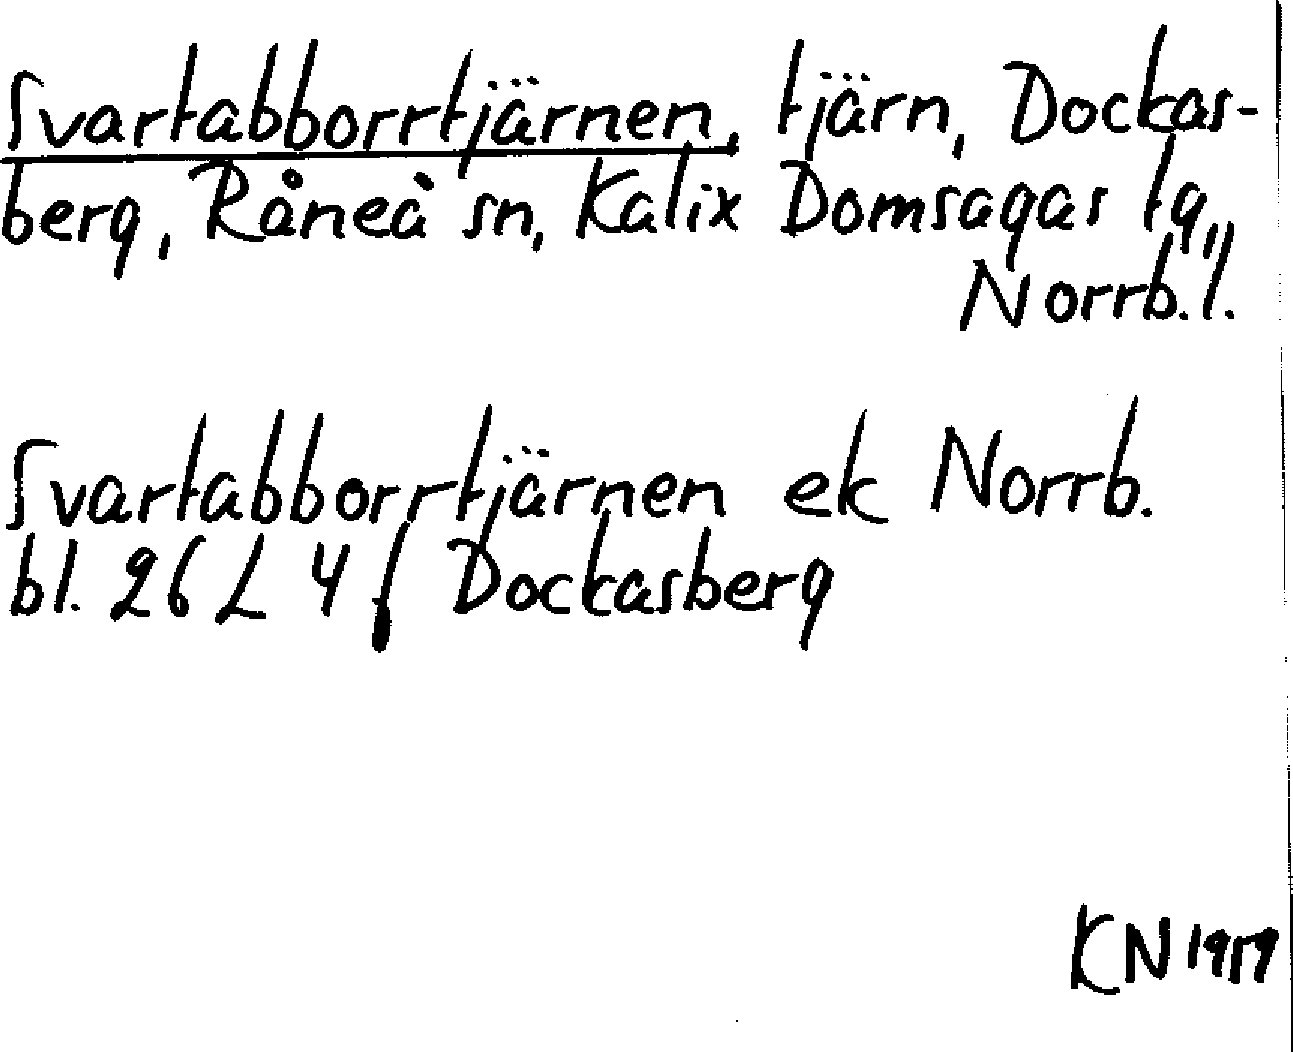 Svartabborrtjärnen, tjärn, Dockas-
berg, Råneå sn, Kalix Domsagas tg,
Norrb. l.
Svartabborrtjärnen ek Norrb.
bl. 26 L 4 f Dockasberg
KN 1959